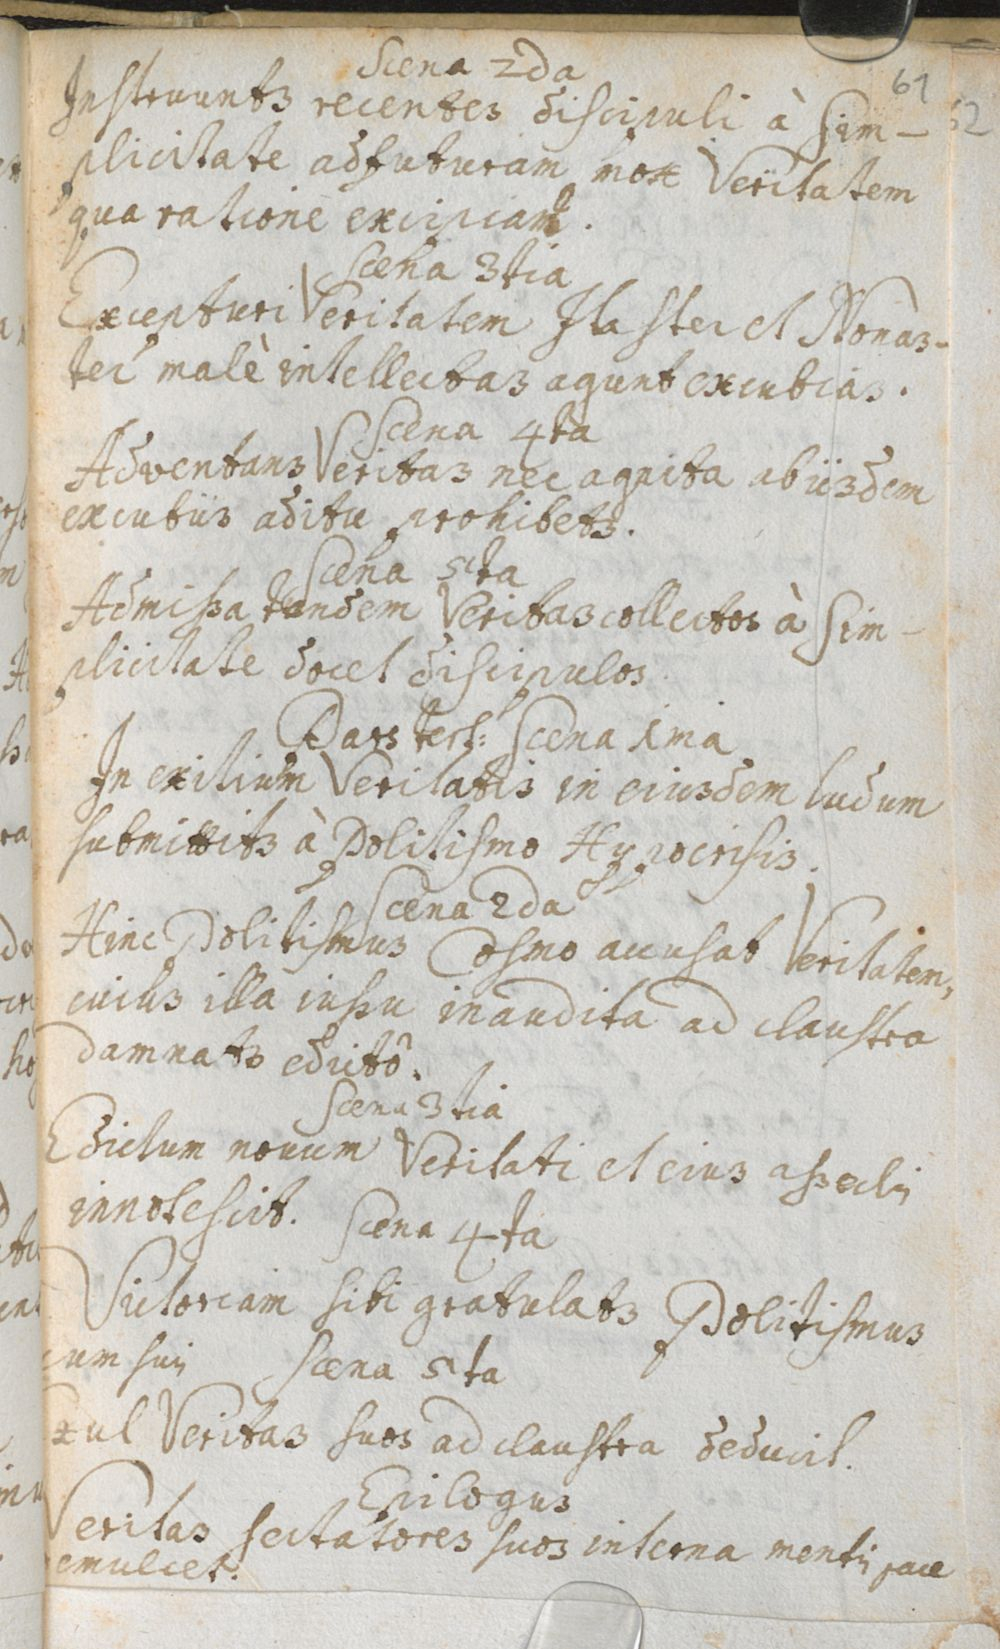 Scena 2da
61
Instruuntz recentes discipuli à Sim-
52
plicitate adfuturam mox Veritatem
qua ratione excipiant.
Scena 3tia
Excepturi Veritatem Ilaster et Nonas-
ter malè intellectas agunt excubias.
Scena 4ta
Adventans Veritas nec agnita ab iisdem
excubiis aditu prohibetz.
Scena 5ta
Admissa tandem Veritas collectos à Sim-
plicitate docet discipulos.
Pars tert: Scena 1ma
In exilium Veritatis in eiusdem ludum
submittitz à Politismo Hypocrisis.
Scena 2da
Hinc Politismus Cosmo accusat Veritatem,
cuius illa iussu inaudita ad claustra
damnatz edictô.
Scena 3tia
Edictum novum Veritati et eius asseclis
innotescit.
Scena 4ta
Victoriam sibi gratulatz Politismus
cum suis
Scena 5ta
Exul Veritas suos ad claustra deducit.
Epilogus
Veritas sectatores suos interna mentis pace
emulcet.